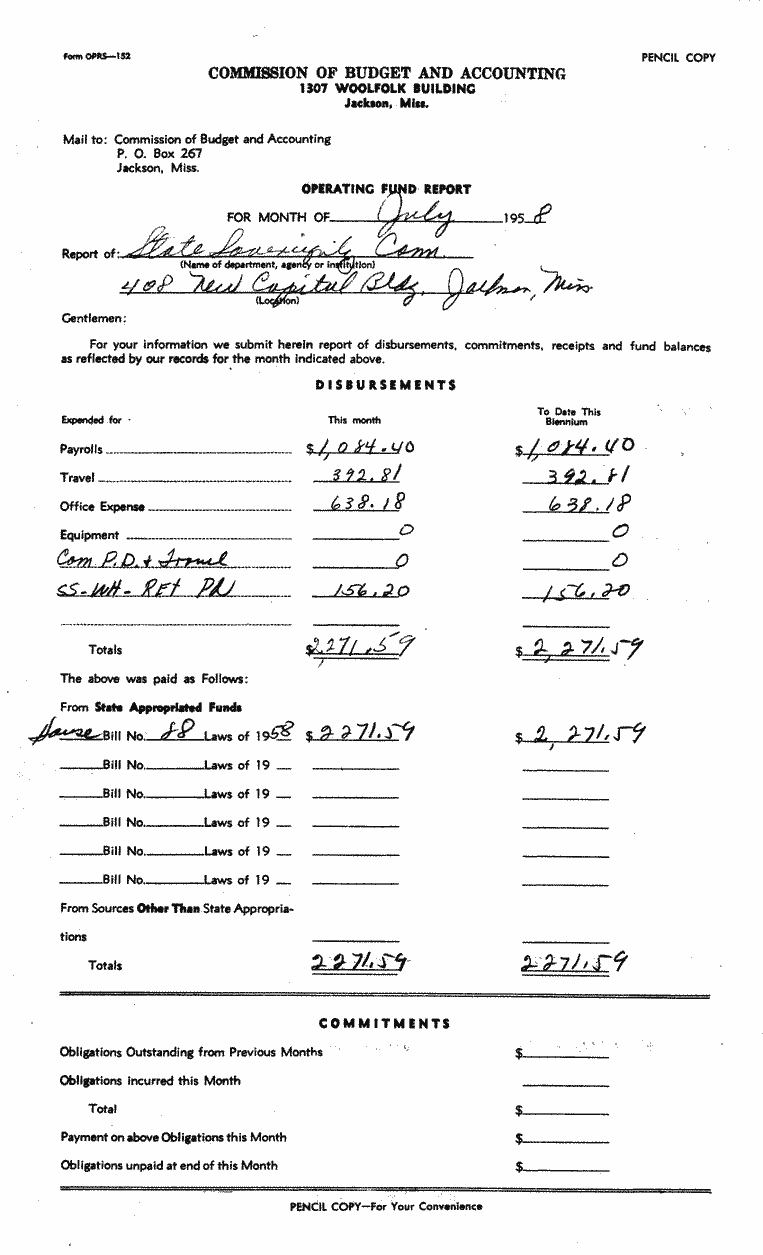 Form OPRS—152
PENCIL COPY
COMMISSION OF BUDGET AND ACCOUNTING
1307 WOOLFOLK BUILDING
Jackson, Miss.
Mail to: Commission of Budget and Accounting
P. O. Box 267
Jackson, Miss.
OPERATING FUND REPORT
FOR MONTH OF July 1958
Report of: State Sovereignty Com.
(Name of department, agency or institution)
408 New Capitol Bldg. Jackson, Miss
(Location)
Gentlemen:
For your information we submit herein report of disbursements, commitments, receipts and fund balances
as reflected by our records for the month indicated above.
DISBURSEMENTS
Expended for This month To Date This Biennium
Payrolls $1,084.40 $1,084.40
Travel 392.81 392.81
Office Expense 638.18 638.18
Equipment 0 0
Com P.D. & Travel 0 0
SS-WH-RET 156.20 156.20
Totals $2,271.59 $2,271.59
The above was paid as Follows:
From State Appropriated Funds
House Bill No. 88 Laws of 1958 $2271.59 $2,271.59
Bill No. Laws of 19
Bill No. Laws of 19
Bill No. Laws of 19
Bill No. Laws of 19
Bill No. Laws of 19
From Sources Other Than State Appropria-
tions
Totals 2271.59 2271.59
COMMITMENTS
Obligations Outstanding from Previous Months $
Obligations incurred this Month
Total $
Payment on above Obligations this Month $
Obligations unpaid at end of this Month $
PENCIL COPY—For Your Convenience